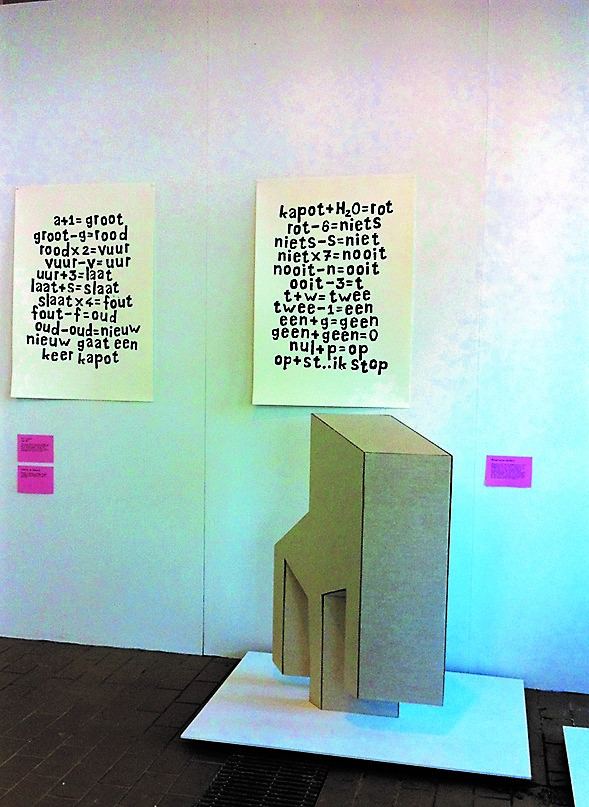 a+1=groot
groot-g=rood
roodx2=vuur
vuur-v=uur
uur+3=laat
laat+s=slaat
slaatx4=fout
fout-f=oud
oud-oud=nieuw
nieuw gaat een
keer kapot
kapot+H₂O=rot
rot-6=niets
niets-s=niet
nietx7=nooit
nooit-n=ooit
ooit-3=t
t+w=twee
twee-1=een
een+g=geen
geen+geen=0
nul+p=op
op+st..ik stop